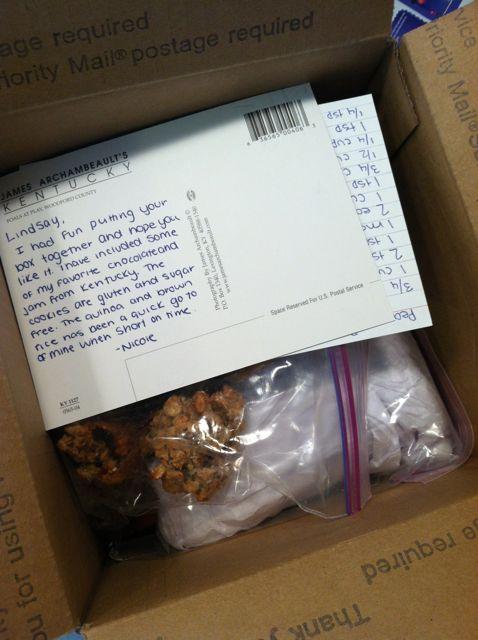 age required
riority Mail® postage required
JAMES ARCHAMBEAULT'S
KENTUCKY
FOALS AT PLAY, WOODFORD COUNTY
Lindsay,
I had fun putting your
box together and hope you
like it. I have included some
of my favorite chocolate and
jam from Kentucky. The
cookies are gluten and sugar
free. The quinoa and brown
rice has been a quick go to
of mine when short on time.
-Nicole
KY 1127
Photography by James Archambeault ©
Space Reserved For U.S. Postal Service
1/4 tsp
1 tsp
1/4 cup
1/2 cu
3/4 c
1 tsp
1 c
2 eg
1 ma
1 st
2 t
1 cu
3/4
Pea
vice
riority Mail®
ou for using
e required
required
Thank